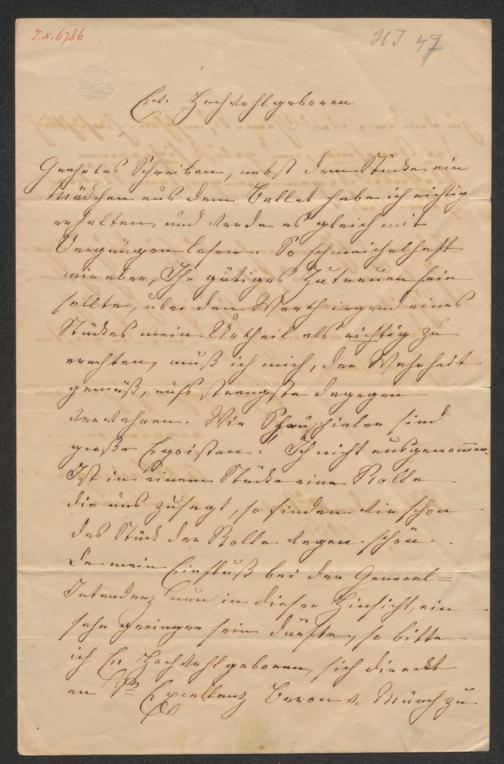 I.N. 6786
HI 47
Ew. Hochwohlgeboren
Geehrtes Schreiben, nebst dem Stücke ein
Mädchen aus dem Ballet habe ich richtig
erhalten, und werde es gleich mit
Vergnügen lesen. So schmeichelhaft
mir aber, Ihr gütiges Zutrauen sein
sollte, über den Werth irgend eines
Stückes mein Urtheil als richtig zu
erachten, muß ich mich, der Wahrheit
gemäß, aufs strengste dagegen
verwahren. Wir Schauspieler sind
große Egoisten. Ich nicht ausgenommen
Ist in einem Stücke eine Rolle
die uns zusagt, so finden wir schon
das Stück der Rolle wegen schön.
Da mein Einfluß bei der General=
Intendanz nun in dieser Hinsicht, ein
sehr geringer sein dürfte, so bitte
ich Ew Hochwohlgeboren, sich direckt
an Sr Excellenz Baron v. Münch zu